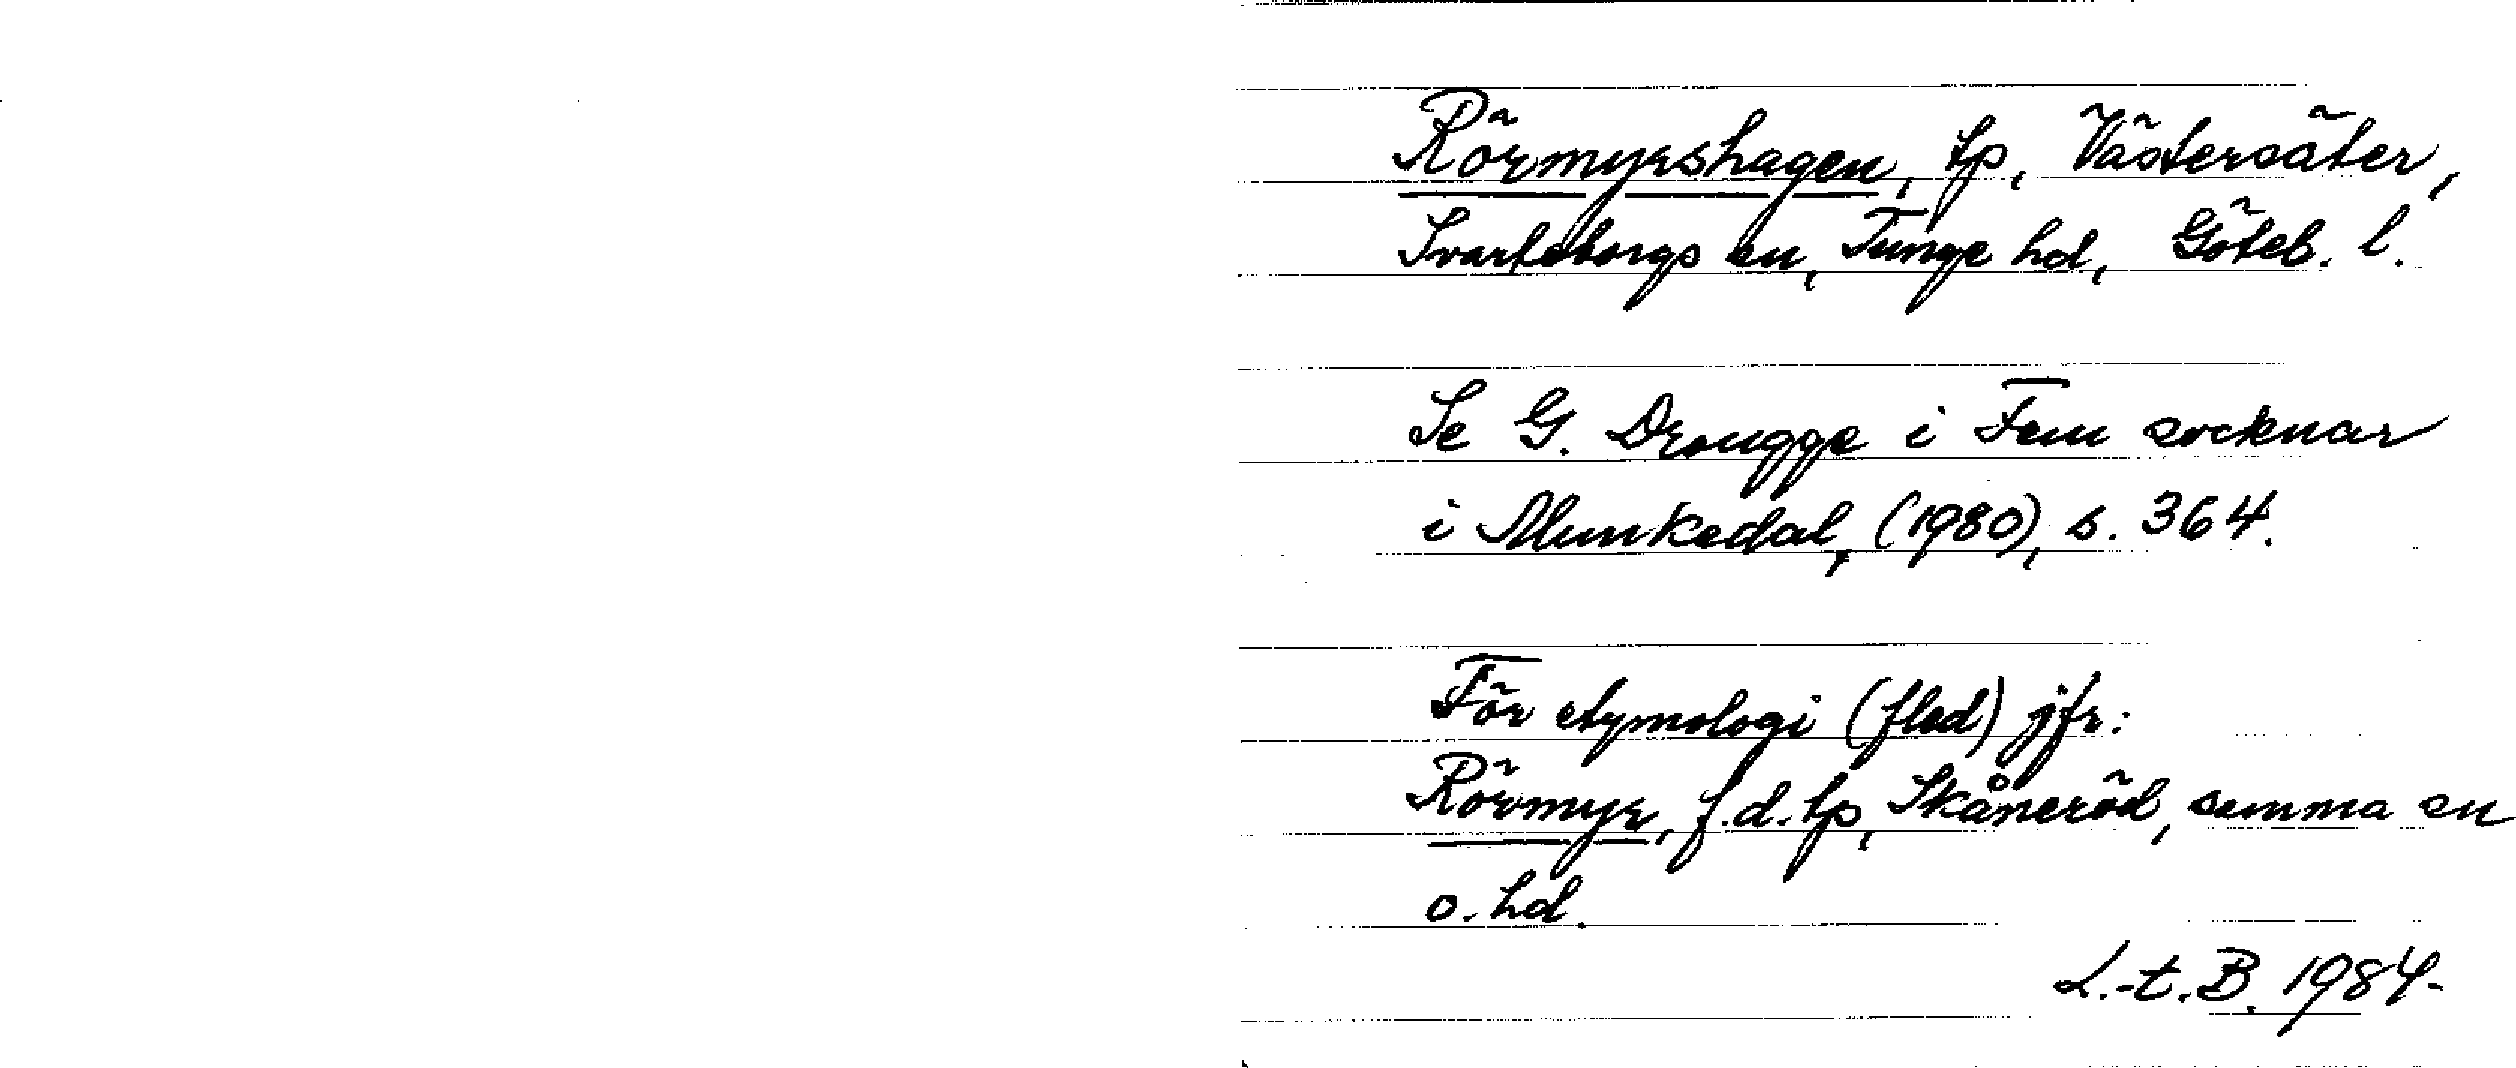 Rörmyrshagen, tp, Västersäter,
Svarteborgs sn, Tunge hd, Göteb. l.
Se G. Drougge i Fem socknar
i Munkedal, (1980), s. 364.
För etymologi (fled) jfr:
Rörmyr, f.d. tp, Skåneröd, samma sn
o. hd.
L.-t. B. 1984-